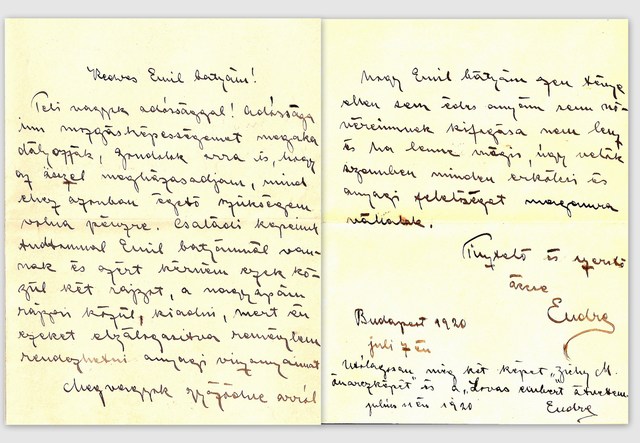 Kedves Emil bátyám!
Teli vagyok adóssággal! Adóssága
im mozgásképességemet megaka
dályozzák, gondolok arra is, hogy
az ősszel megházasodjam, mind
ehez azonban égető szükségem
volna pénzre. Családi képeink
tudtommal Emil bátyámnál van-
nak és ezért kérném ezek kö-
zül két rajzot, a nagyapám
rajzai közül, kiadni, mert én
ezeket elzálogosítva remélhetem
rendezhetni anyagi viszonyaimat
Meg vagyok győződve arról
hogy Emil bátyám ezen ténye
ellen sem édes anyám sem nő-
véreimnek kifogása nem lesz
és ha lenne mégis, úgy velük
szemben minden erkölcsi és
anyagi felelőséget magamra
vállalok.
Tisztelő és szerető
öccse
Endre
Budapest 1920
juli 7 én
Utólagosan még két képet „Zichy M.
önarczképét" és a „Lovas embert" átvettem
julius 11 én 1920 Endre